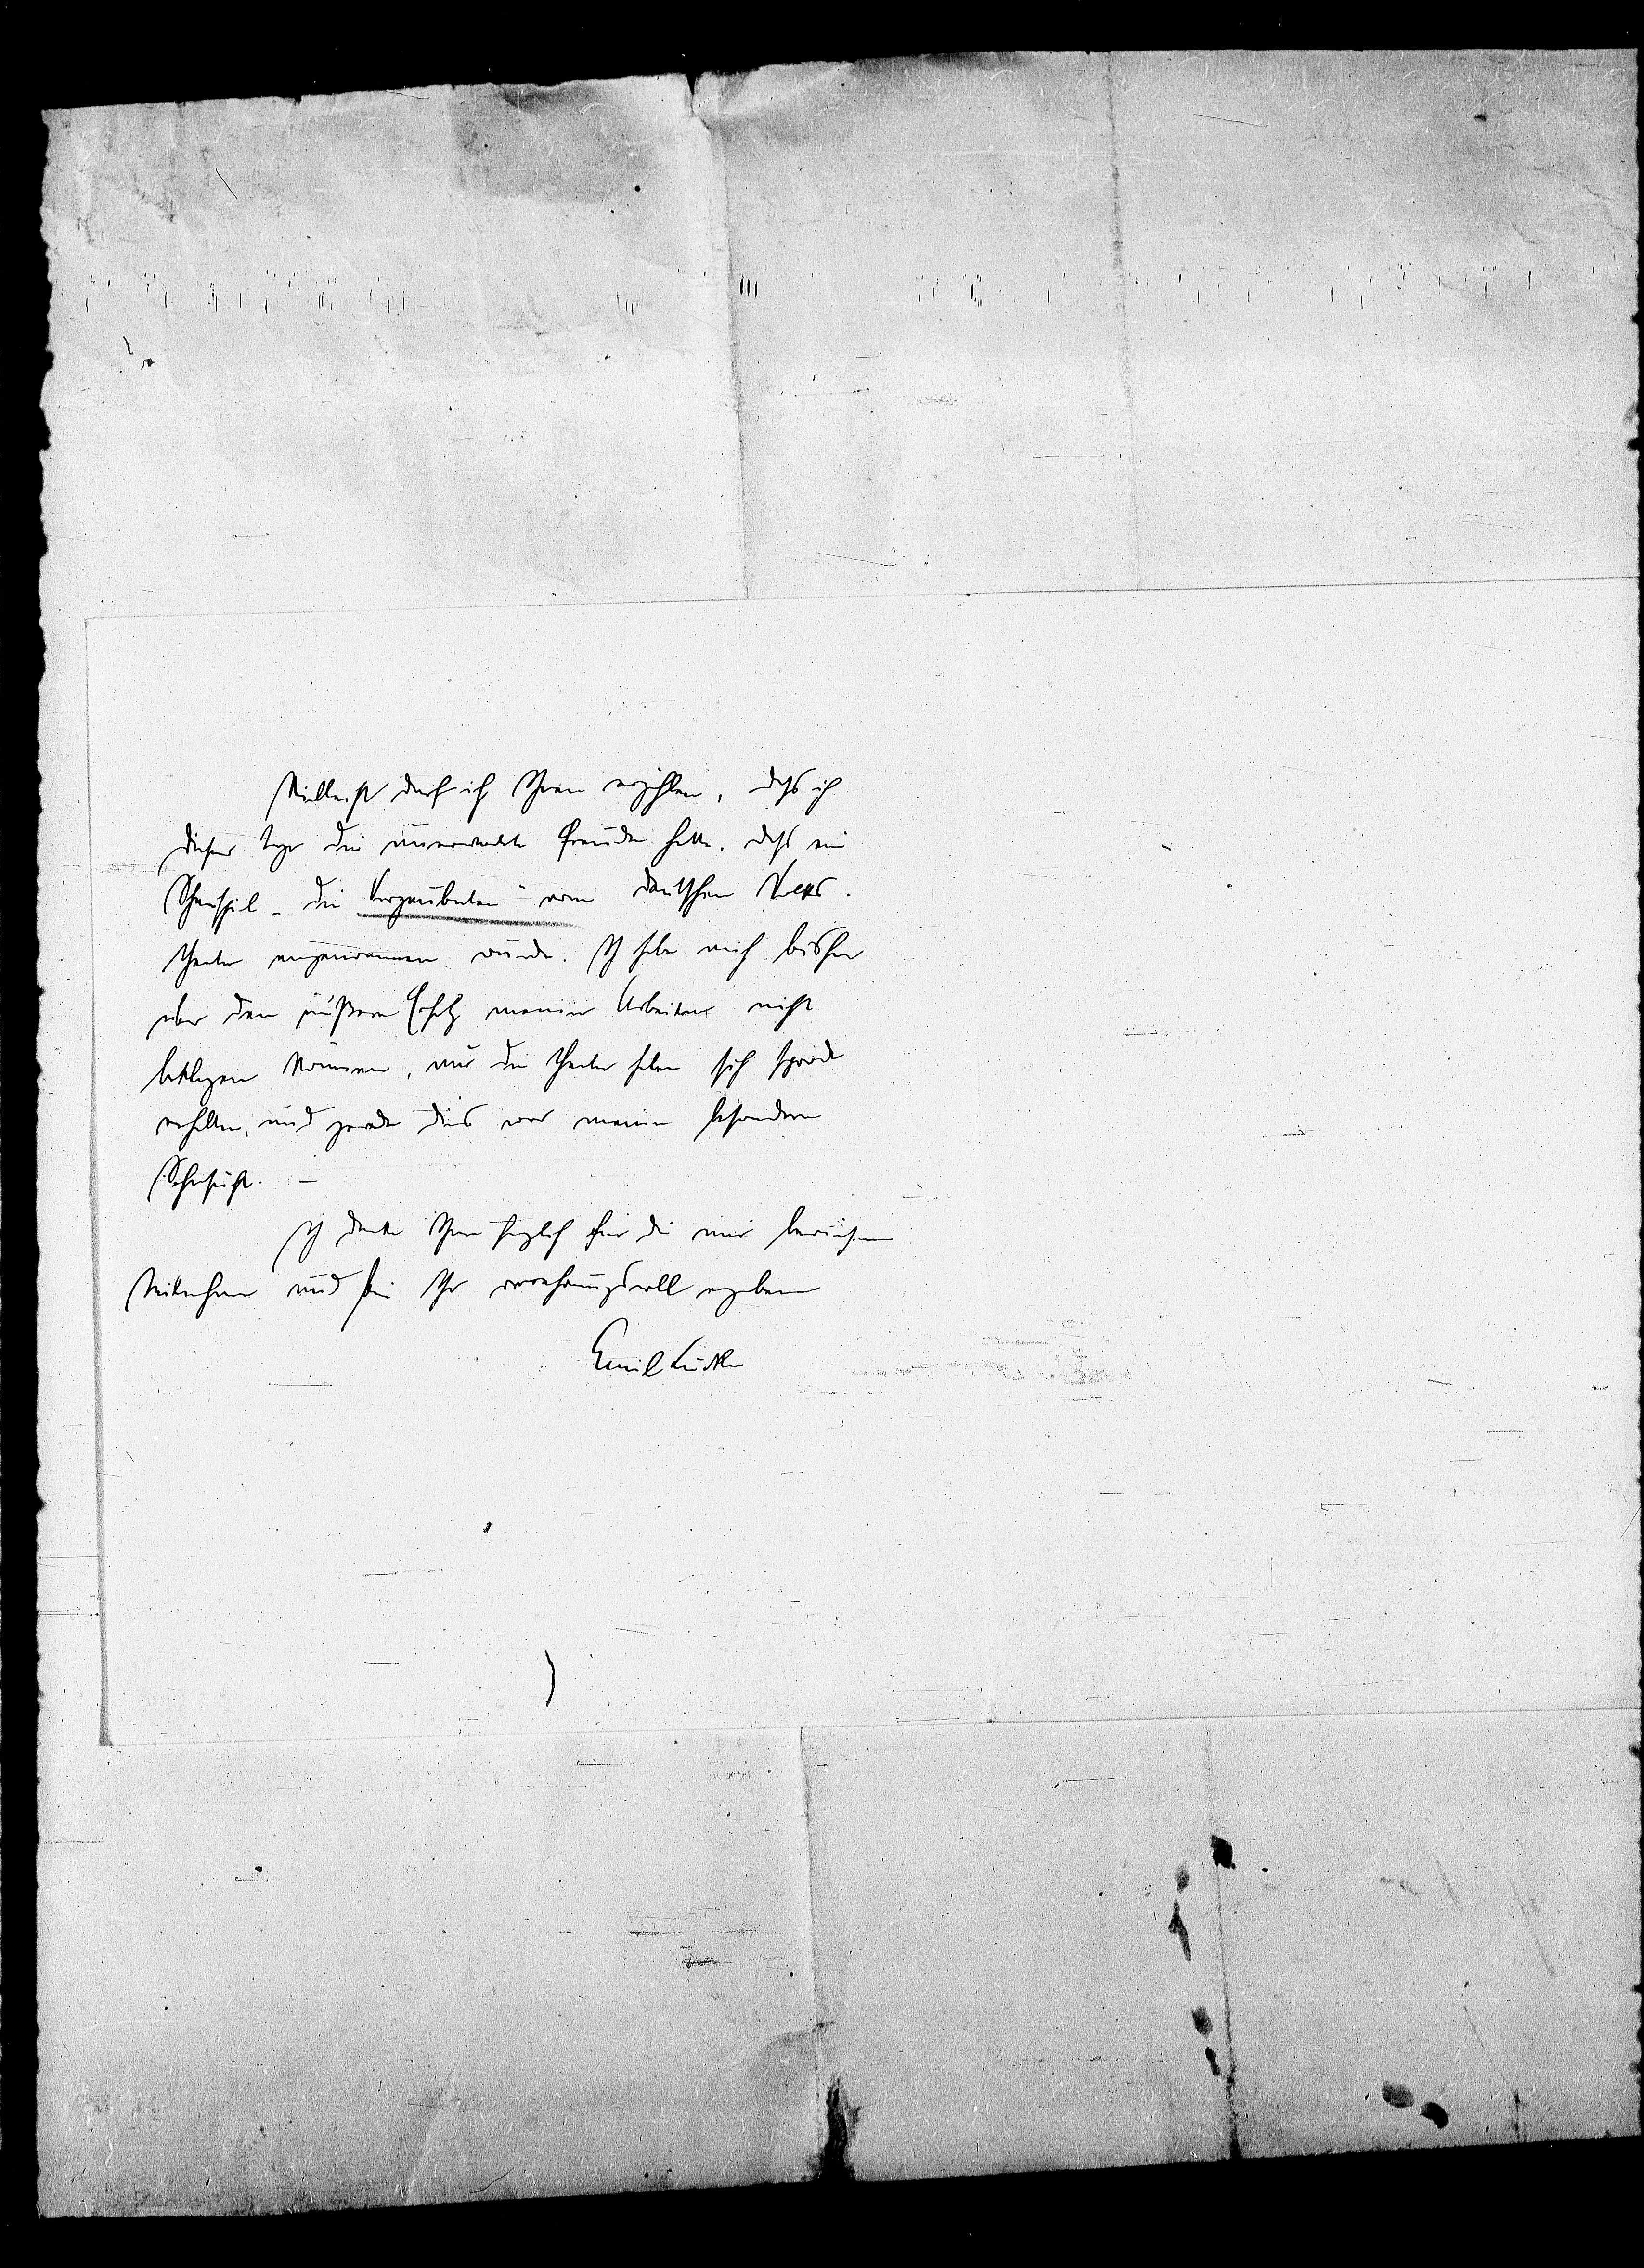 Vielleicht darf ich Ihnen erzählen, dass ich
dieser Tage die unerwartete Freude hatte, dass ein
Schauspiel „Die Verzauberten“ vom Deutschen Volks-
theater angenommen wurde. Ich habe mich bisher
über den äußern Erfolg meiner Arbeiten nicht
beklagen können, nur die Theater haben sich spröde
verhalten, und gerade dies war meine besondere
Sehnsucht. —
Ich danke Ihnen herzlich für die mir bewiesene
Teilnahme und bin Ihr verehrungsvoll ergebener
Emil Lucka